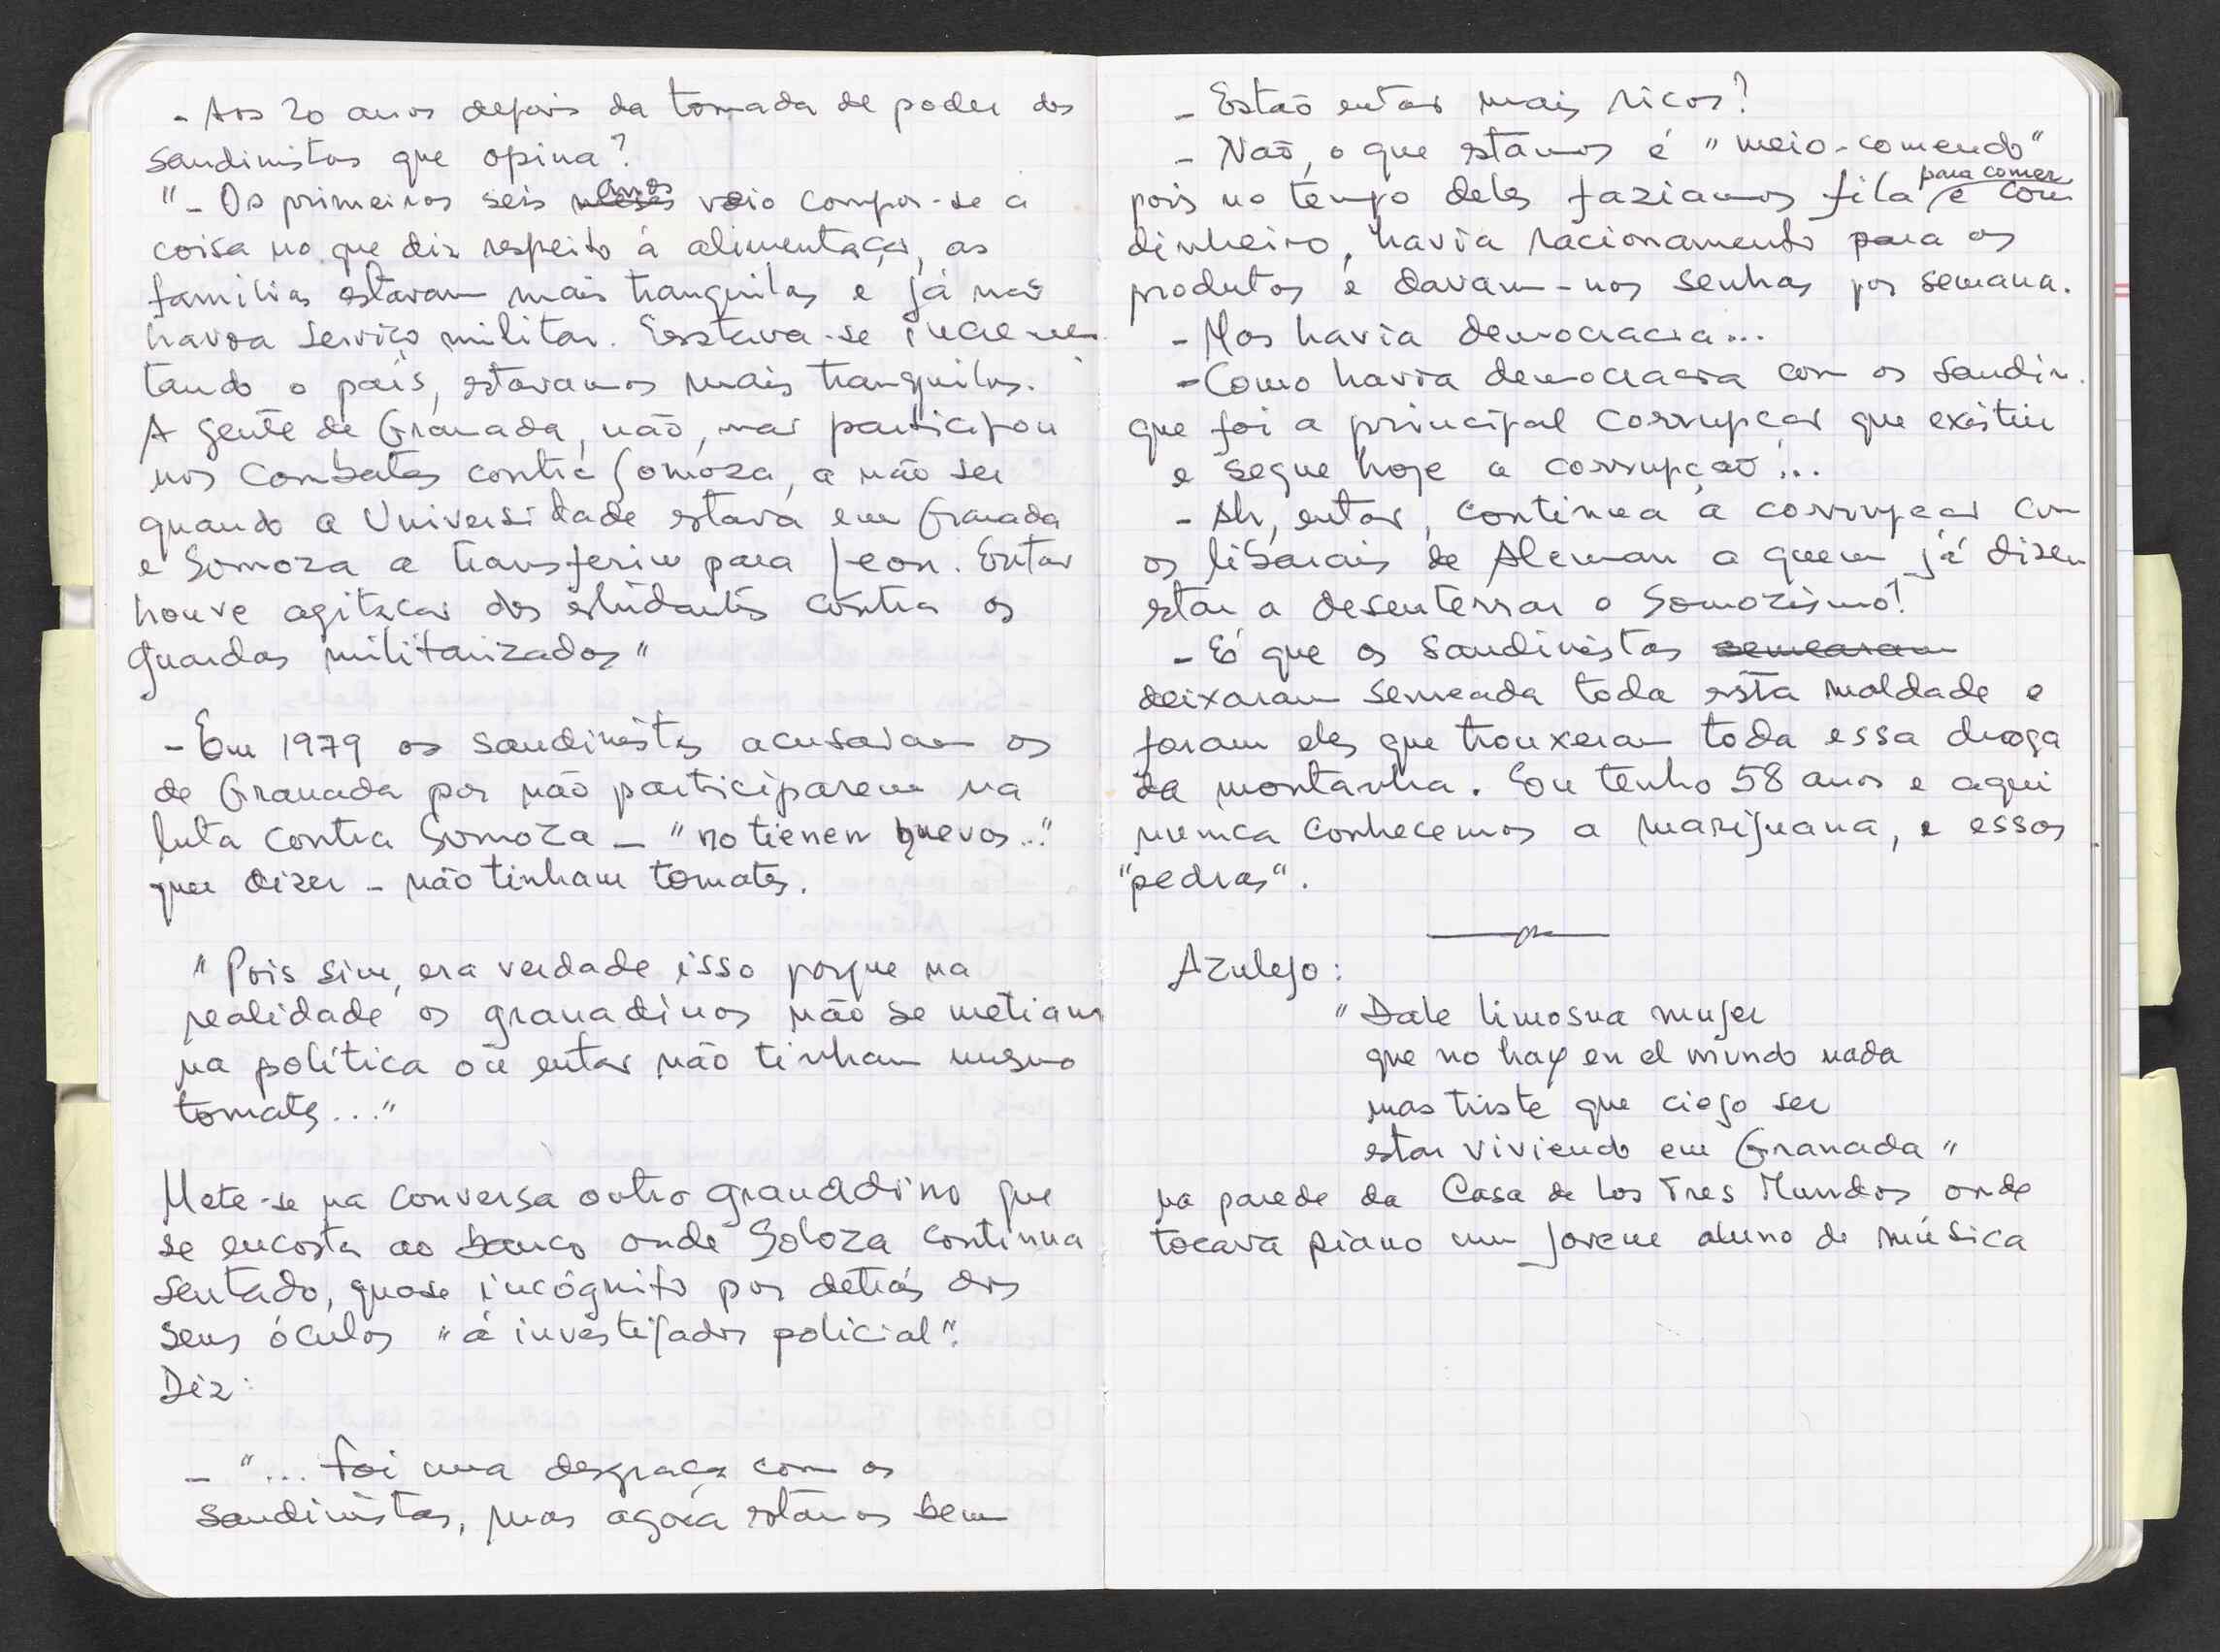 - Aos 20 anos depois da tomada de poder dos
sandinistas que opina?
"- Os primeiros seis meses anos veio compor-se a
coisa no que diz respeito á alimentação, as
familias estavam mais tranquilas e já não
havia serviço militar. Estava-se incremen
tando o país, estavamos mais tranquilos.
A gente de Granada, não, não participou
nos combates contra Somoza, a não ser
quando a Universidade estava em Granada
e Somoza a transferiu para Leon. Então
houve agitação dos estudantes contra os
guardas militarizados"
- Em 1979 os sandinistas acusavam os
de Granada por não participarem na
luta contra Somoza - "no tienen huevos..."
quer dizer - não tinham tomates.
"Pois sim, era verdade isso porque na
realidade os granadinos não se metiam
na política ou então não tinham mesmo
tomates..."
Mete-se na conversa outro granadino que
se encosta ao banco onde Soloza continua
sentado, quase incógnito por detrás dos
seus óculos "á investigador policial".
Diz:
- "... foi uma desgraça com os
sandinistas, mas agora estamos bem
- Estão então mais ricos?
- Não, o que estamos é "meio-comendo"
pois no tempo deles faziamos fila para comer e com
dinheiro, havia racionamento para os
produtos e davam-nos senhas por semana.
- Mas havia democracia...
- Como havia democracia com os sandin.
que foi a principal corrupção que existiu
e segue hoje a corrupção!..
- Ah, então, continua a corrupção com
os liberais de Aleman a quem já dizem
estar a desenterrar o Somozismo!
- É que os sandinistas semearam
deixaram semeada toda esta maldade e
foram eles que trouxeram toda essa droga
da montanha. Eu tenho 58 anos e aqui
nunca conhecemos a marijuana, e essas
"pedras".
Azulejo:
"Dale limosna mujer
que no hay en el mundo nada
mas triste que ciego ser
estar viviendo em Granada"
na parede da Casa de los Tres Mundos onde
tocava piano um jovem aluno de música